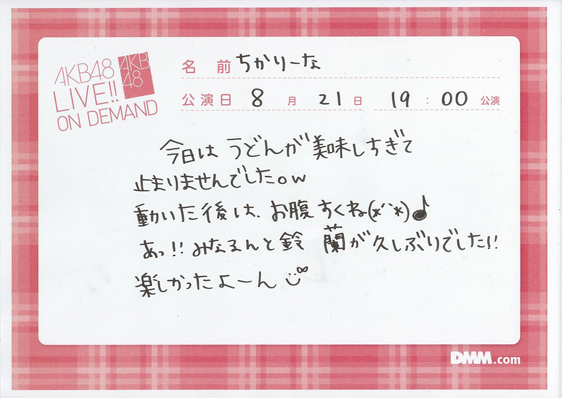 AKB48
LIVE!!
ON DEMAND
AKB
48
名 前 ちかりーな
公演日 8 月 21 日 19 : 00 公演
今日は うどんが 美味しすぎて
止まりませんでした。w
動いた後は、お腹すくね(*´`*)♪
あっ!! みなるんと鈴蘭が久しぶりでした!!
楽しかったよーん
DMM.com